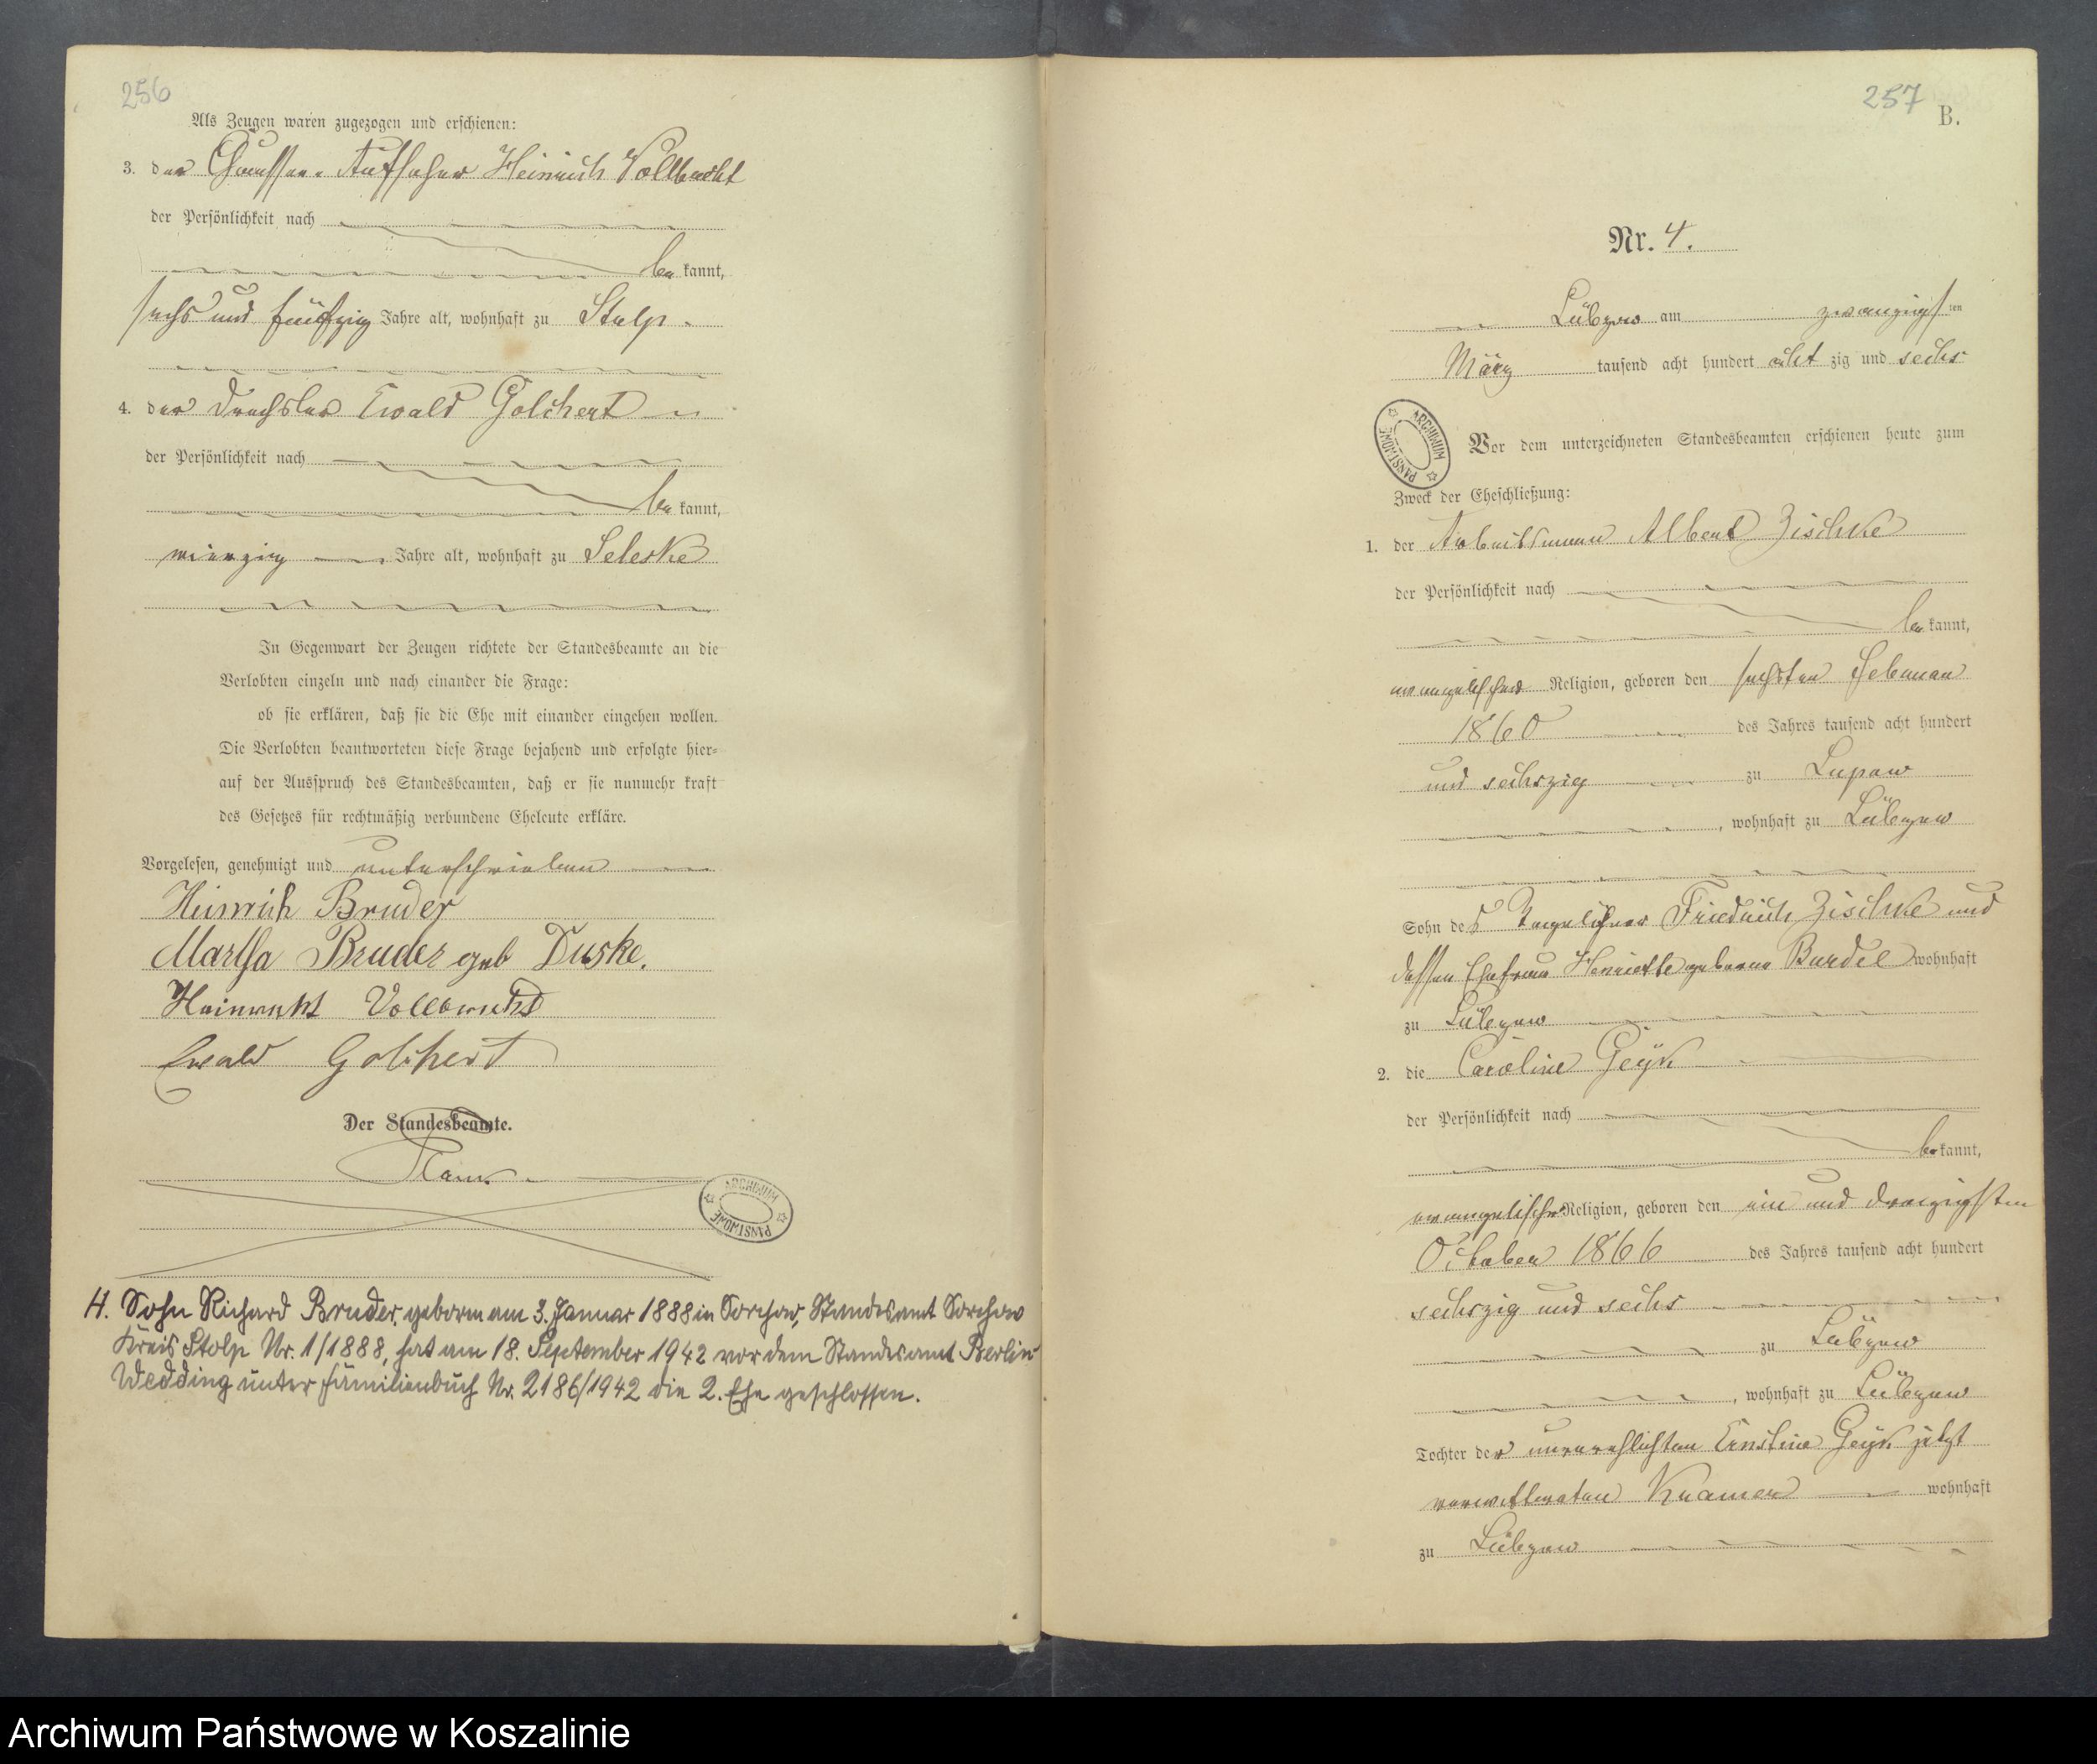 256
Als Zeugen waren zugezogen und erschienen:
3. der Chaussee-Aufseher Heinrich Vollbrecht
der Persönlichkeit nach
be kannt,
sechs und fünfzig Jahre alt, wohnhaft zu Stolp.
4. der Drechsler Ewald Golchert
der Persönlichkeit nach
be kannt,
vierzig Jahre alt, wohnhaft zu Seleske
In Gegenwart der Zeugen richtete der Standesbeamte an die
Verlobten einzeln und nach einander die Frage:
ob sie erklären, daß sie die Ehe mit einander eingehen wollen.
Die Verlobten beantworteten diese Frage bejahend und erfolgte hier-
auf der Ausspruch des Standesbeamten, daß er sie nunmehr kraft
des Gesetzes für rechtmäßig verbundene Eheleute erkläre.
Vorgelesen, genehmigt und unterschrieben
Heinrich Bruder
Martha Bruder geb Duske.
Heinrich Vollbrecht
Ewald Golchert
Der Standesbeamte.
ARCHIWUM PAŃSTWOWE
H. Sohn Richard Bruder, geboren am 3. Januar 1888 in Sorchow, Standesamt Sorchow
Kreis Stolp Nr. 1/1888, hat am 18. September 1942 vor dem Standesamt Berlin-
Wedding unter Familienbuch Nr. 2186/1942 die 2. Ehe geschlossen.
257
B.
Nr. 4.
Lübzow am zwanzigsten
März tausend acht hundert acht zig und sechs
ARCHIWUM PAŃSTWOWE
Vor dem unterzeichneten Standesbeamten erschienen heute zum
Zweck der Eheschließung:
1. der Arbeitsmann Albert Zischke
der Persönlichkeit nach
be kannt,
evangelischer Religion, geboren den sechsten Februar
1860 des Jahres tausend acht hundert
und sechszig zu Lupow
, wohnhaft zu Lübzow
Sohn des Tagelöhner Friedrich Zischke und
dessen Ehefrau Henriette geborne Bardel wohnhaft
zu Lübzow
2. die Caroline Geyk
der Persönlichkeit nach
be kannt,
evangelischer Religion, geboren den ein und dreizigsten
October 1866 des Jahres tausend acht hundert
sechszig und sechs
zu Lübzow
, wohnhaft zu Lübzow
Tochter der unverehlichten Ernstine Geyk jetzt
verwittweten Kramer wohnhaft
zu Lübzow
Archiwum Państwowe w Koszalinie